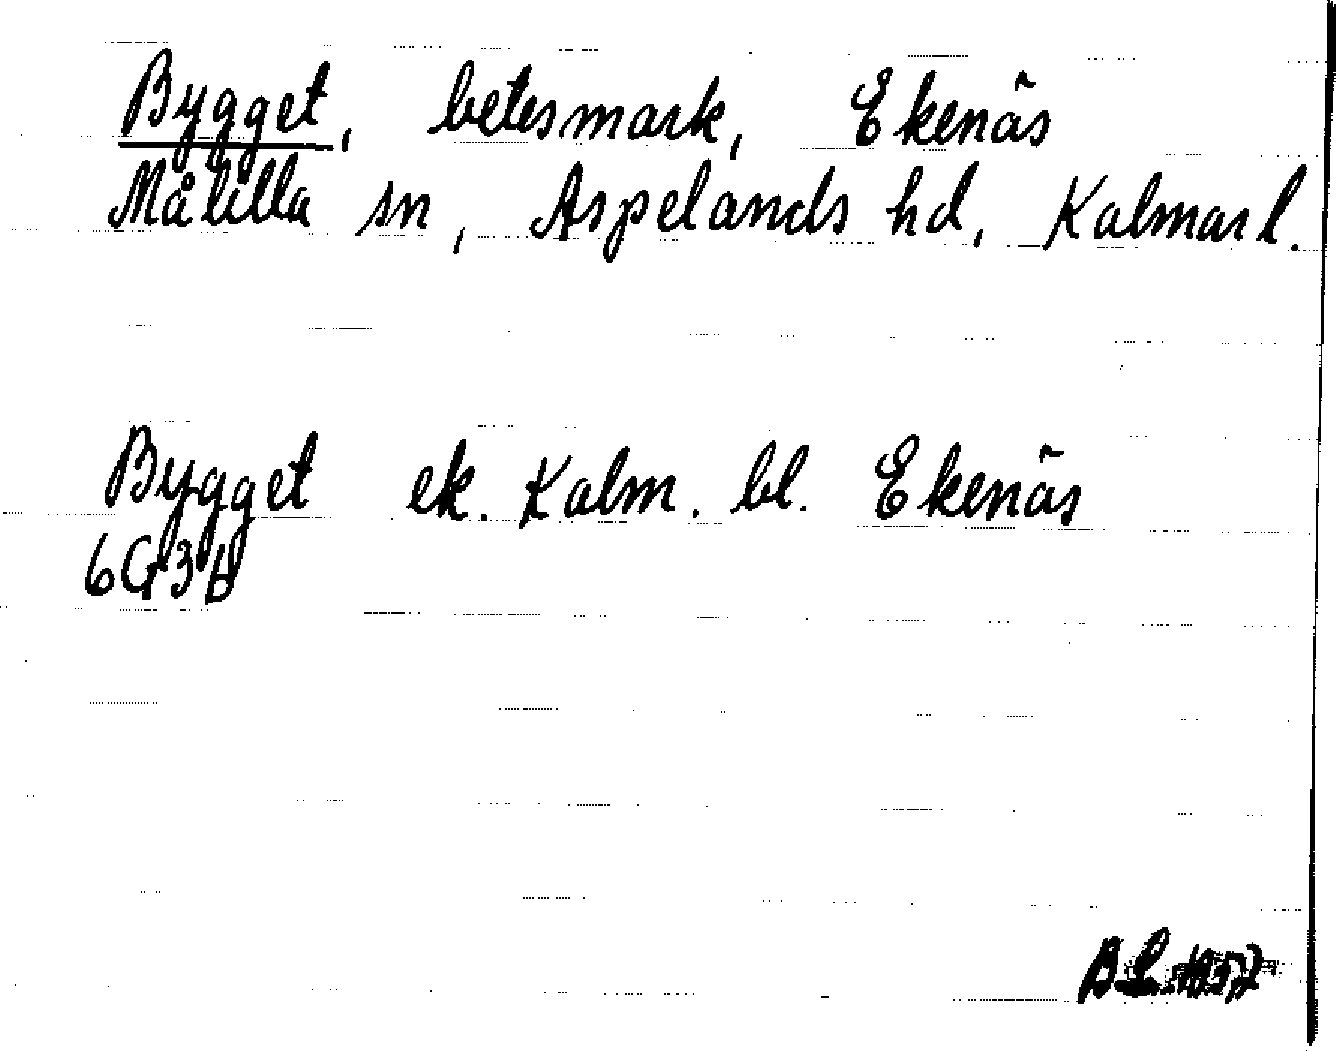 Bygget, betesmark, Ekenäs
Målilla sn, Aspelands hd, Kalmar l.
Bygget ek. Kalm. bl. Ekenäs
6G3b
BL 1957